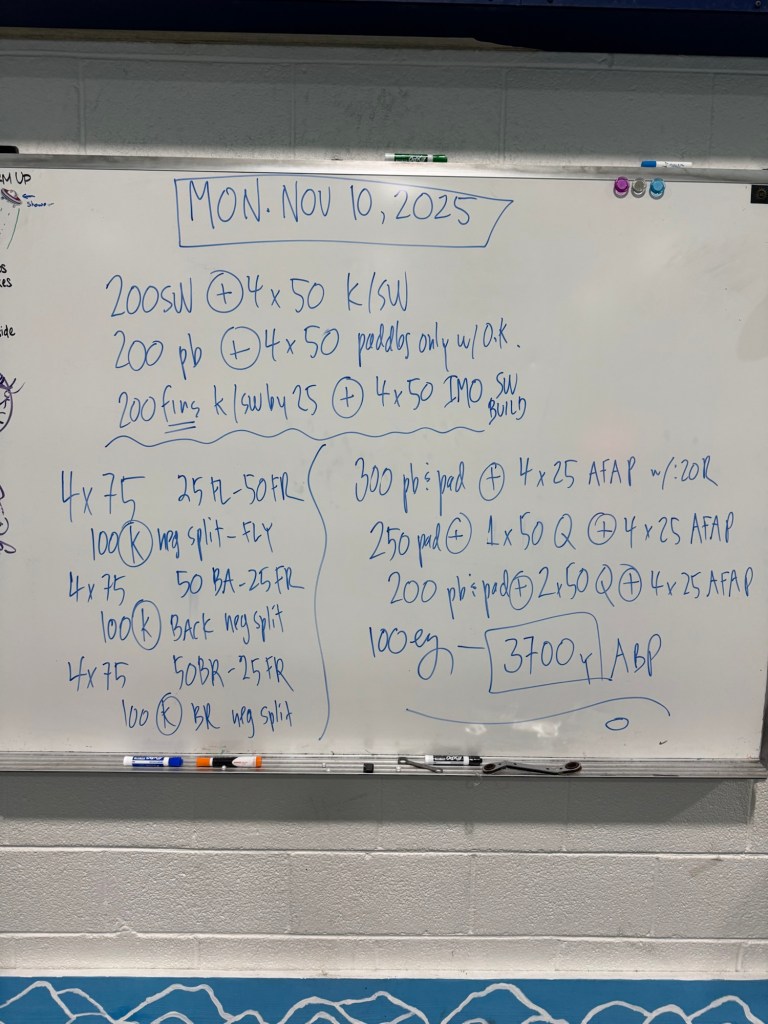 RM UP
Shane
MON. NOV 10, 2025
200 SW + 4 x 50 K/SW
200 pb + 4 x 50 paddles only w/ O.K.
200 fins k/sw by 25 + 4 x 50 IMO SW BUILD
4 x 75 25 FL - 50 FR
100 K neg split - FLY
4 x 75 50 BA - 25 FR
100 K BACK neg split
4 x 75 50 BR - 25 FR
100 K BR neg split
300 pb & pad + 4 x 25 AFAP w/ :20R
250 pad + 1 x 50 Q + 4 x 25 AFAP
200 pb & pad + 2 x 50 Q + 4 x 25 AFAP
100 ez - 3700y ABP